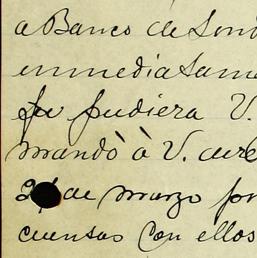 a Banco de Lond
immediatame
fu pudiera V.
mandò à V. cure
2 de marzo por
cuentas con ellos